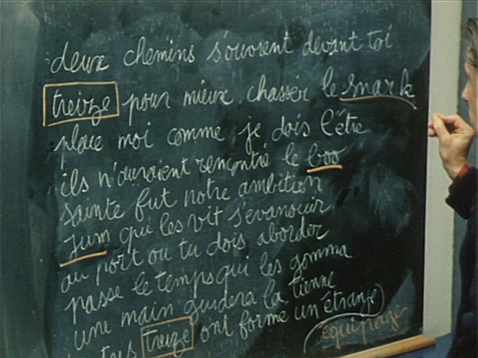 deux chemins s'ouvrent devant toi
treize pour mieux chasser le snark
place moi comme je dois l'être
ils n'auraient rencontré le boo
sainte fut notre ambition
jum qui les vit s'évanouir
au port ou tu dois aborder
passe le temps qui les gomma
une main guidera la tienne
treize ont formé un étrange
équipage